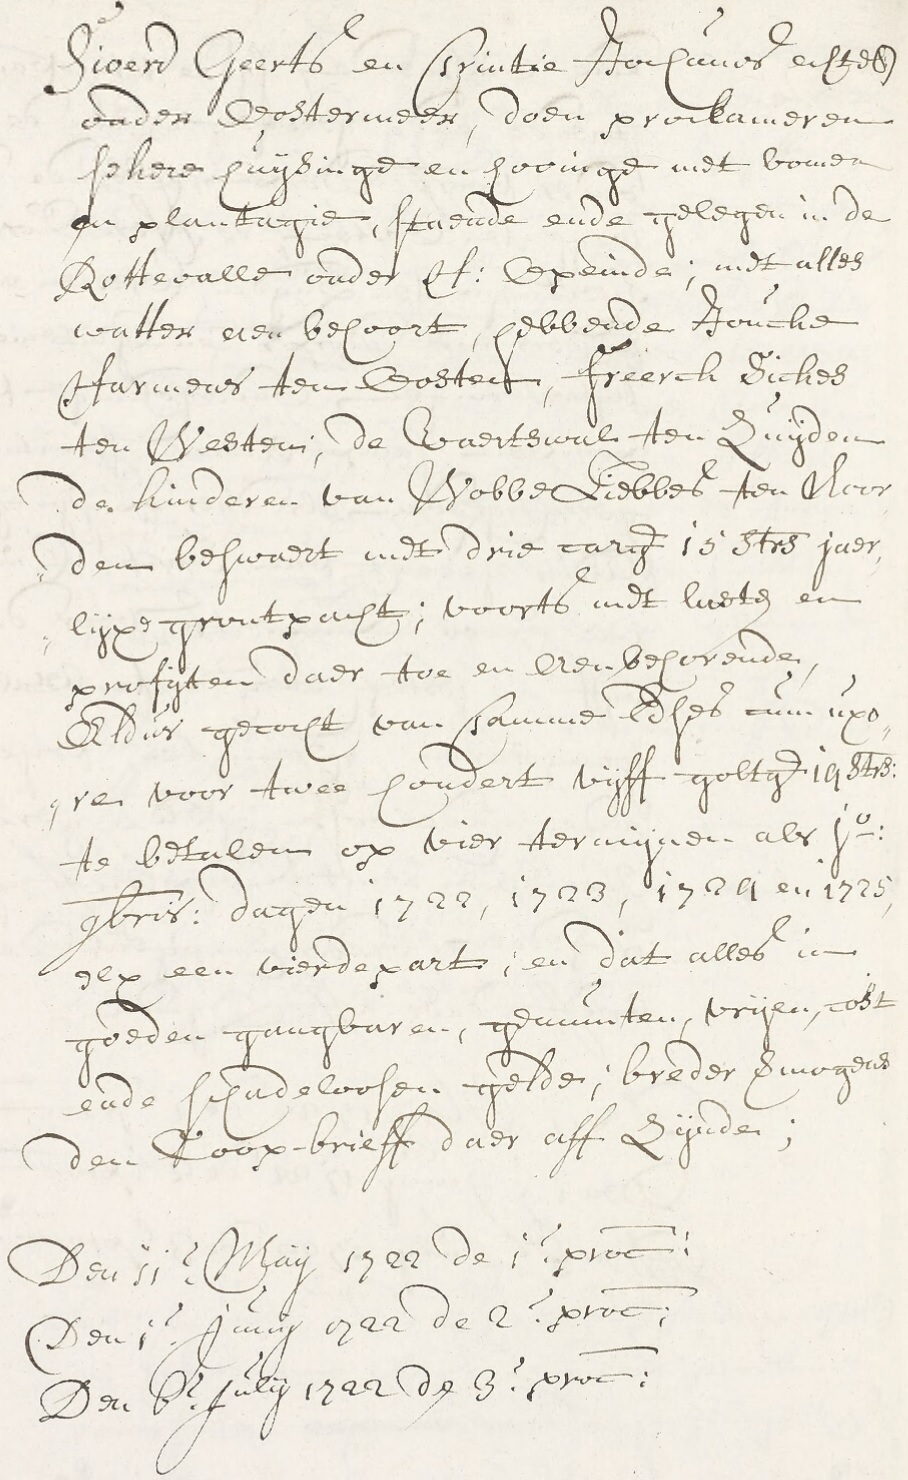 Sioerd Geerts en Trintie Jochums echtel
onder Oostermeer, doen proclameren
sekere huijsinge en hovinge met bomen
en plantagie, staende ende gelegen in de
Rottevalle onder H: Opeinde; met alles
watter aen behoort, hebbende Jouche
Harmens ten Oosten, Freerck Siches
ten Westen, de Vaertswal ten Zuijden
de kinderen van Wobbe Tiebbes ten Noor
den beswaert met drie carg 15 strs jaer,
lijxe grontpacht; voorts met lasten en
profijten daer toe en aenbehorende,
Aldus gecocht van Samme Edses cum uxo,
re voor twee hondert vijff goltg 19 strs:
te betalen op vier termijnen als po:
9bris: dagen 1722, 1723, 1724 en 1725,
elx een vierdepart, en dat alles in
goeden gangbaren, gemunten, vrijen, cost
ende schadeloosen gelde; breder vmogens
den Coop-brieff daer aff Zijnde;
Den 11e Maij 1722 de 1e proc:
Den 1e Junij 1722 de 2e proc:
Den 6e Julij 1722 de 3e proc: